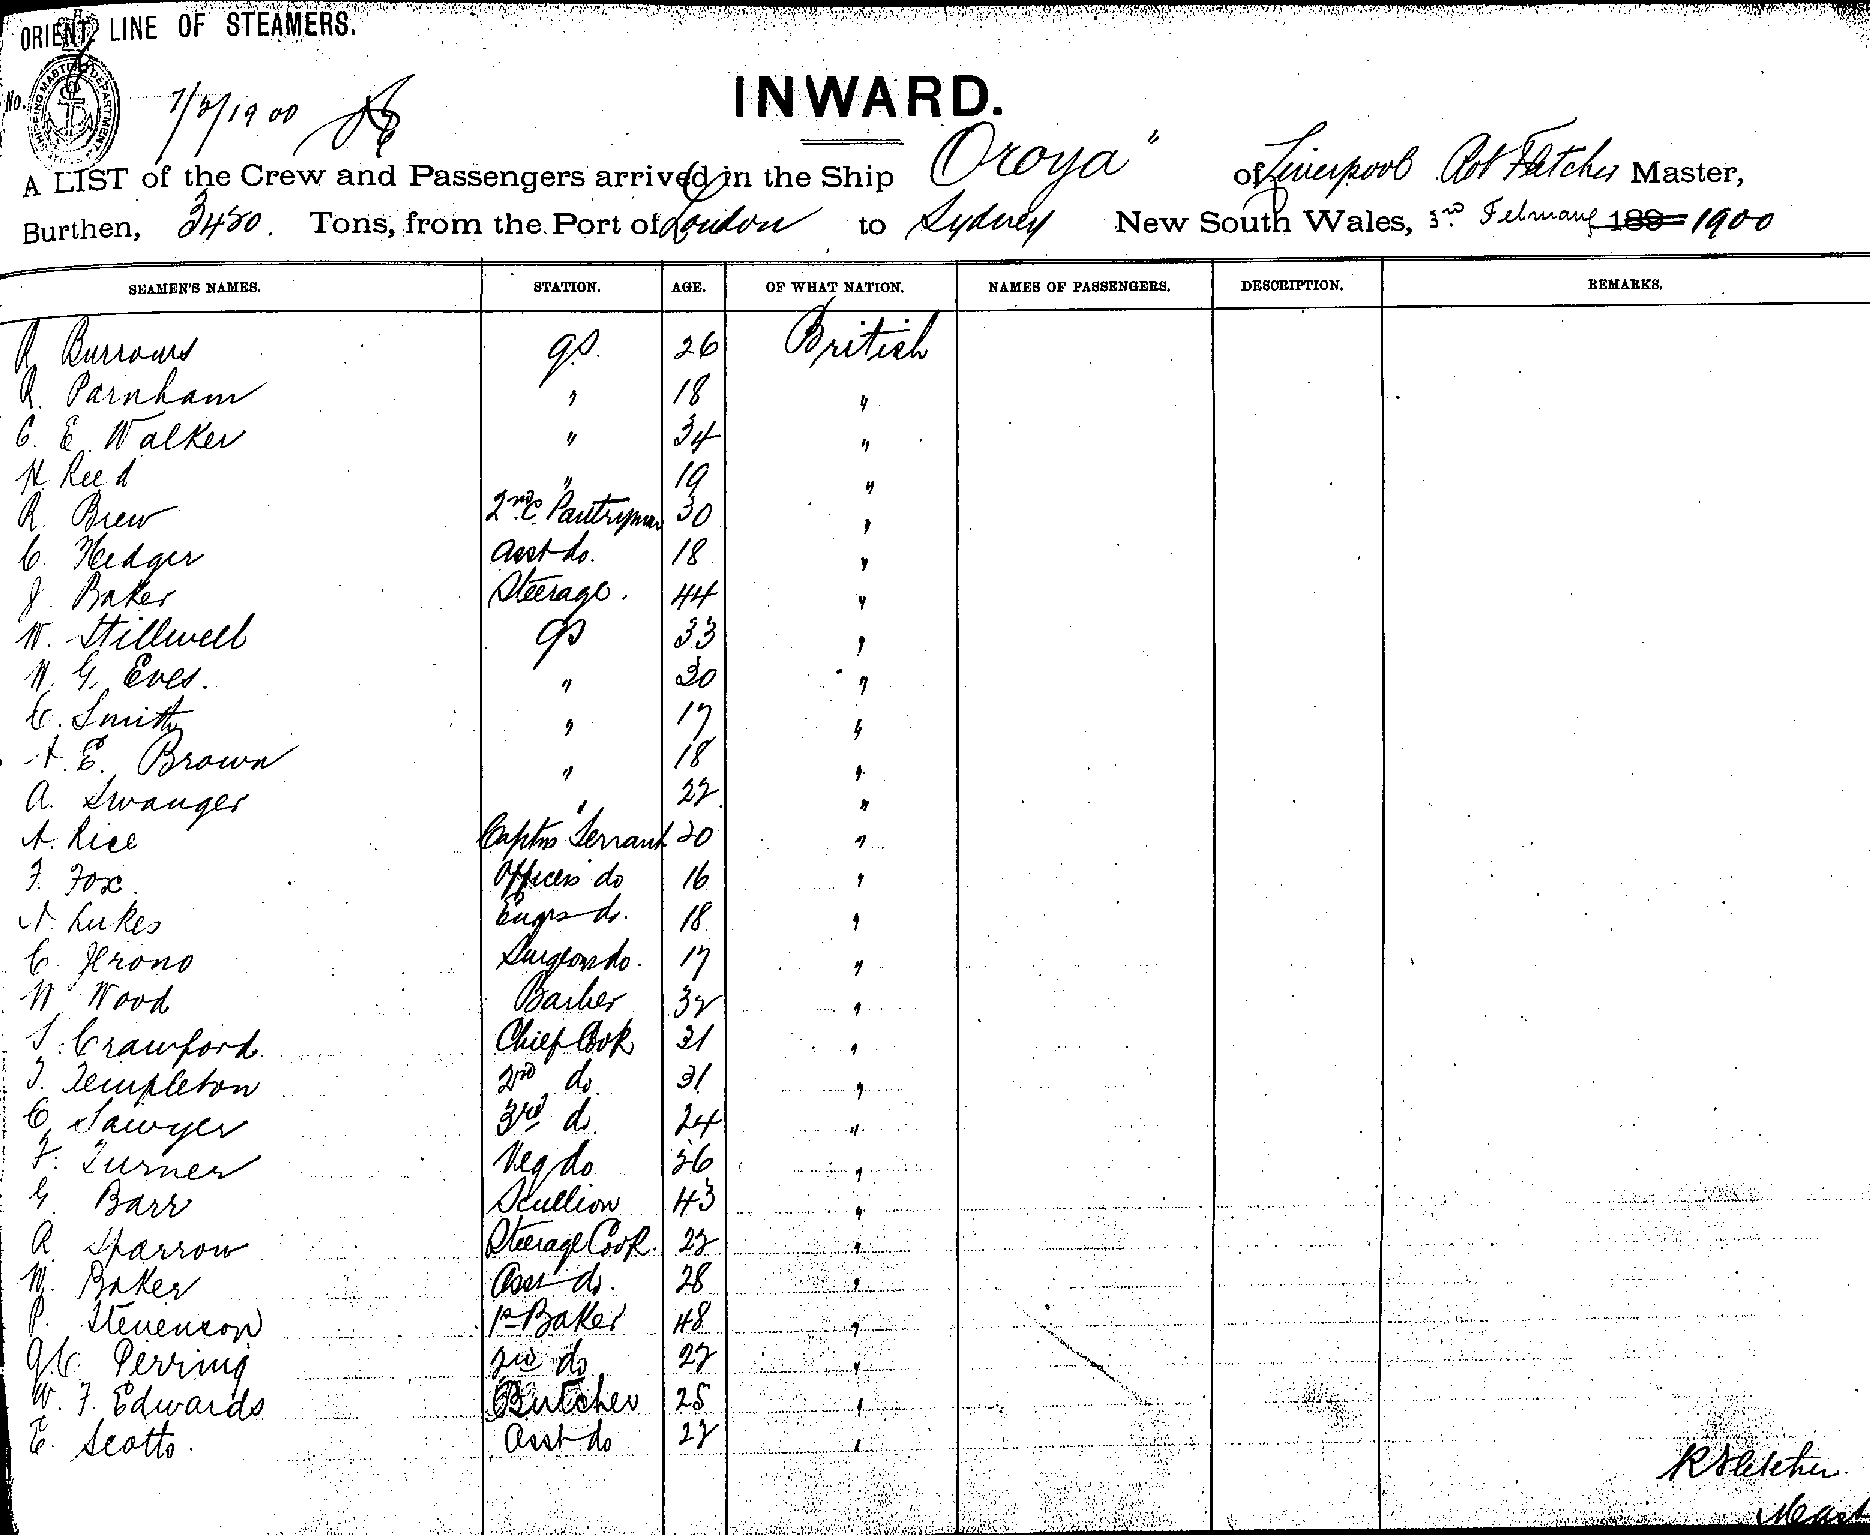 ORIENT LINE OF STEAMERS.
No.
7/2/1900
INWARD.
A LIST of the Crew and Passengers arrived in the Ship Oroya" of Liverpool Rob Fletcher Master,
Burthen, 3450. Tons, from the Port of London to Sydney New South Wales, 3rd February 189 1900
SEAMEN'S NAMES. STATION. AGE. OF WHAT NATION. NAMES OF PASSENGERS. DESCRIPTION. REMARKS.
R Burrows gs. 26 British
R. Parnham " 18 "
C. E. Walker " 34 "
H Reed " 19 "
R. Brew 2nd C. Pantryman 30 "
C. Hedger Asst do. 18 "
J. Baker Steerage. 44 "
W. Stillwell gs 33 "
W. G. Eves. " 30 "
C. Smith " 17 "
A. E. Brown " 18 "
A. Swanger " 22 "
A. Rice Captns Servant 20 "
F. Fox. Officers do 16 "
A. Lukes Engrs do. 18 "
C. Jerono Surgeons do. 17 "
W Wood Barber 32 "
S. Crawford. Chief Cook 31 "
T. Templeton 2nd do 31 "
C. Sawyer 3rd do 24 "
F. Turner Veg do 26 "
G. Barr Scullion 43 "
R Sparrow Steerage Cook. 22 "
W. Baker Asst do. 28 "
P. Stevenson 1st Baker 48 "
G. C. Perring 2nd do 22 "
W. F. Edwards Butcher 25 "
E. Scotts. Asst do 22 "
R Fletcher
Mast